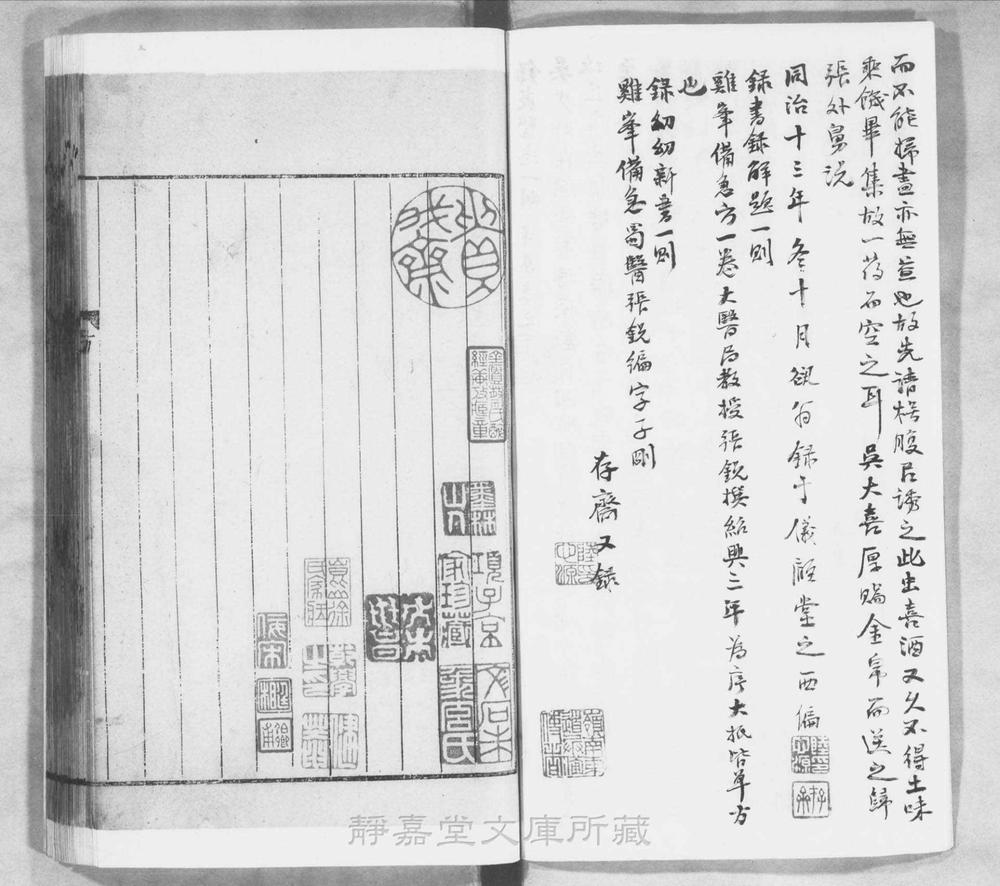 而不能婦盡亦無益也故先請枵腹居誘之此出喜酒又久不得土味
乘饑畢集故一藥而空之耳吳大喜厚賜金帛而送之歸
張外舅說
同治十三年冬十月潛翁錄于儀顧堂之西偏
錄書錄解題一則
雞峯備急方一卷大醫局教授張銳撰紹興三年為序大抵皆單方
也
錄幼幼新書一則
雞峯備急蜀醫張銳編字子剛
存齋又錄
項子京
家珍藏
靜嘉堂文庫所藏